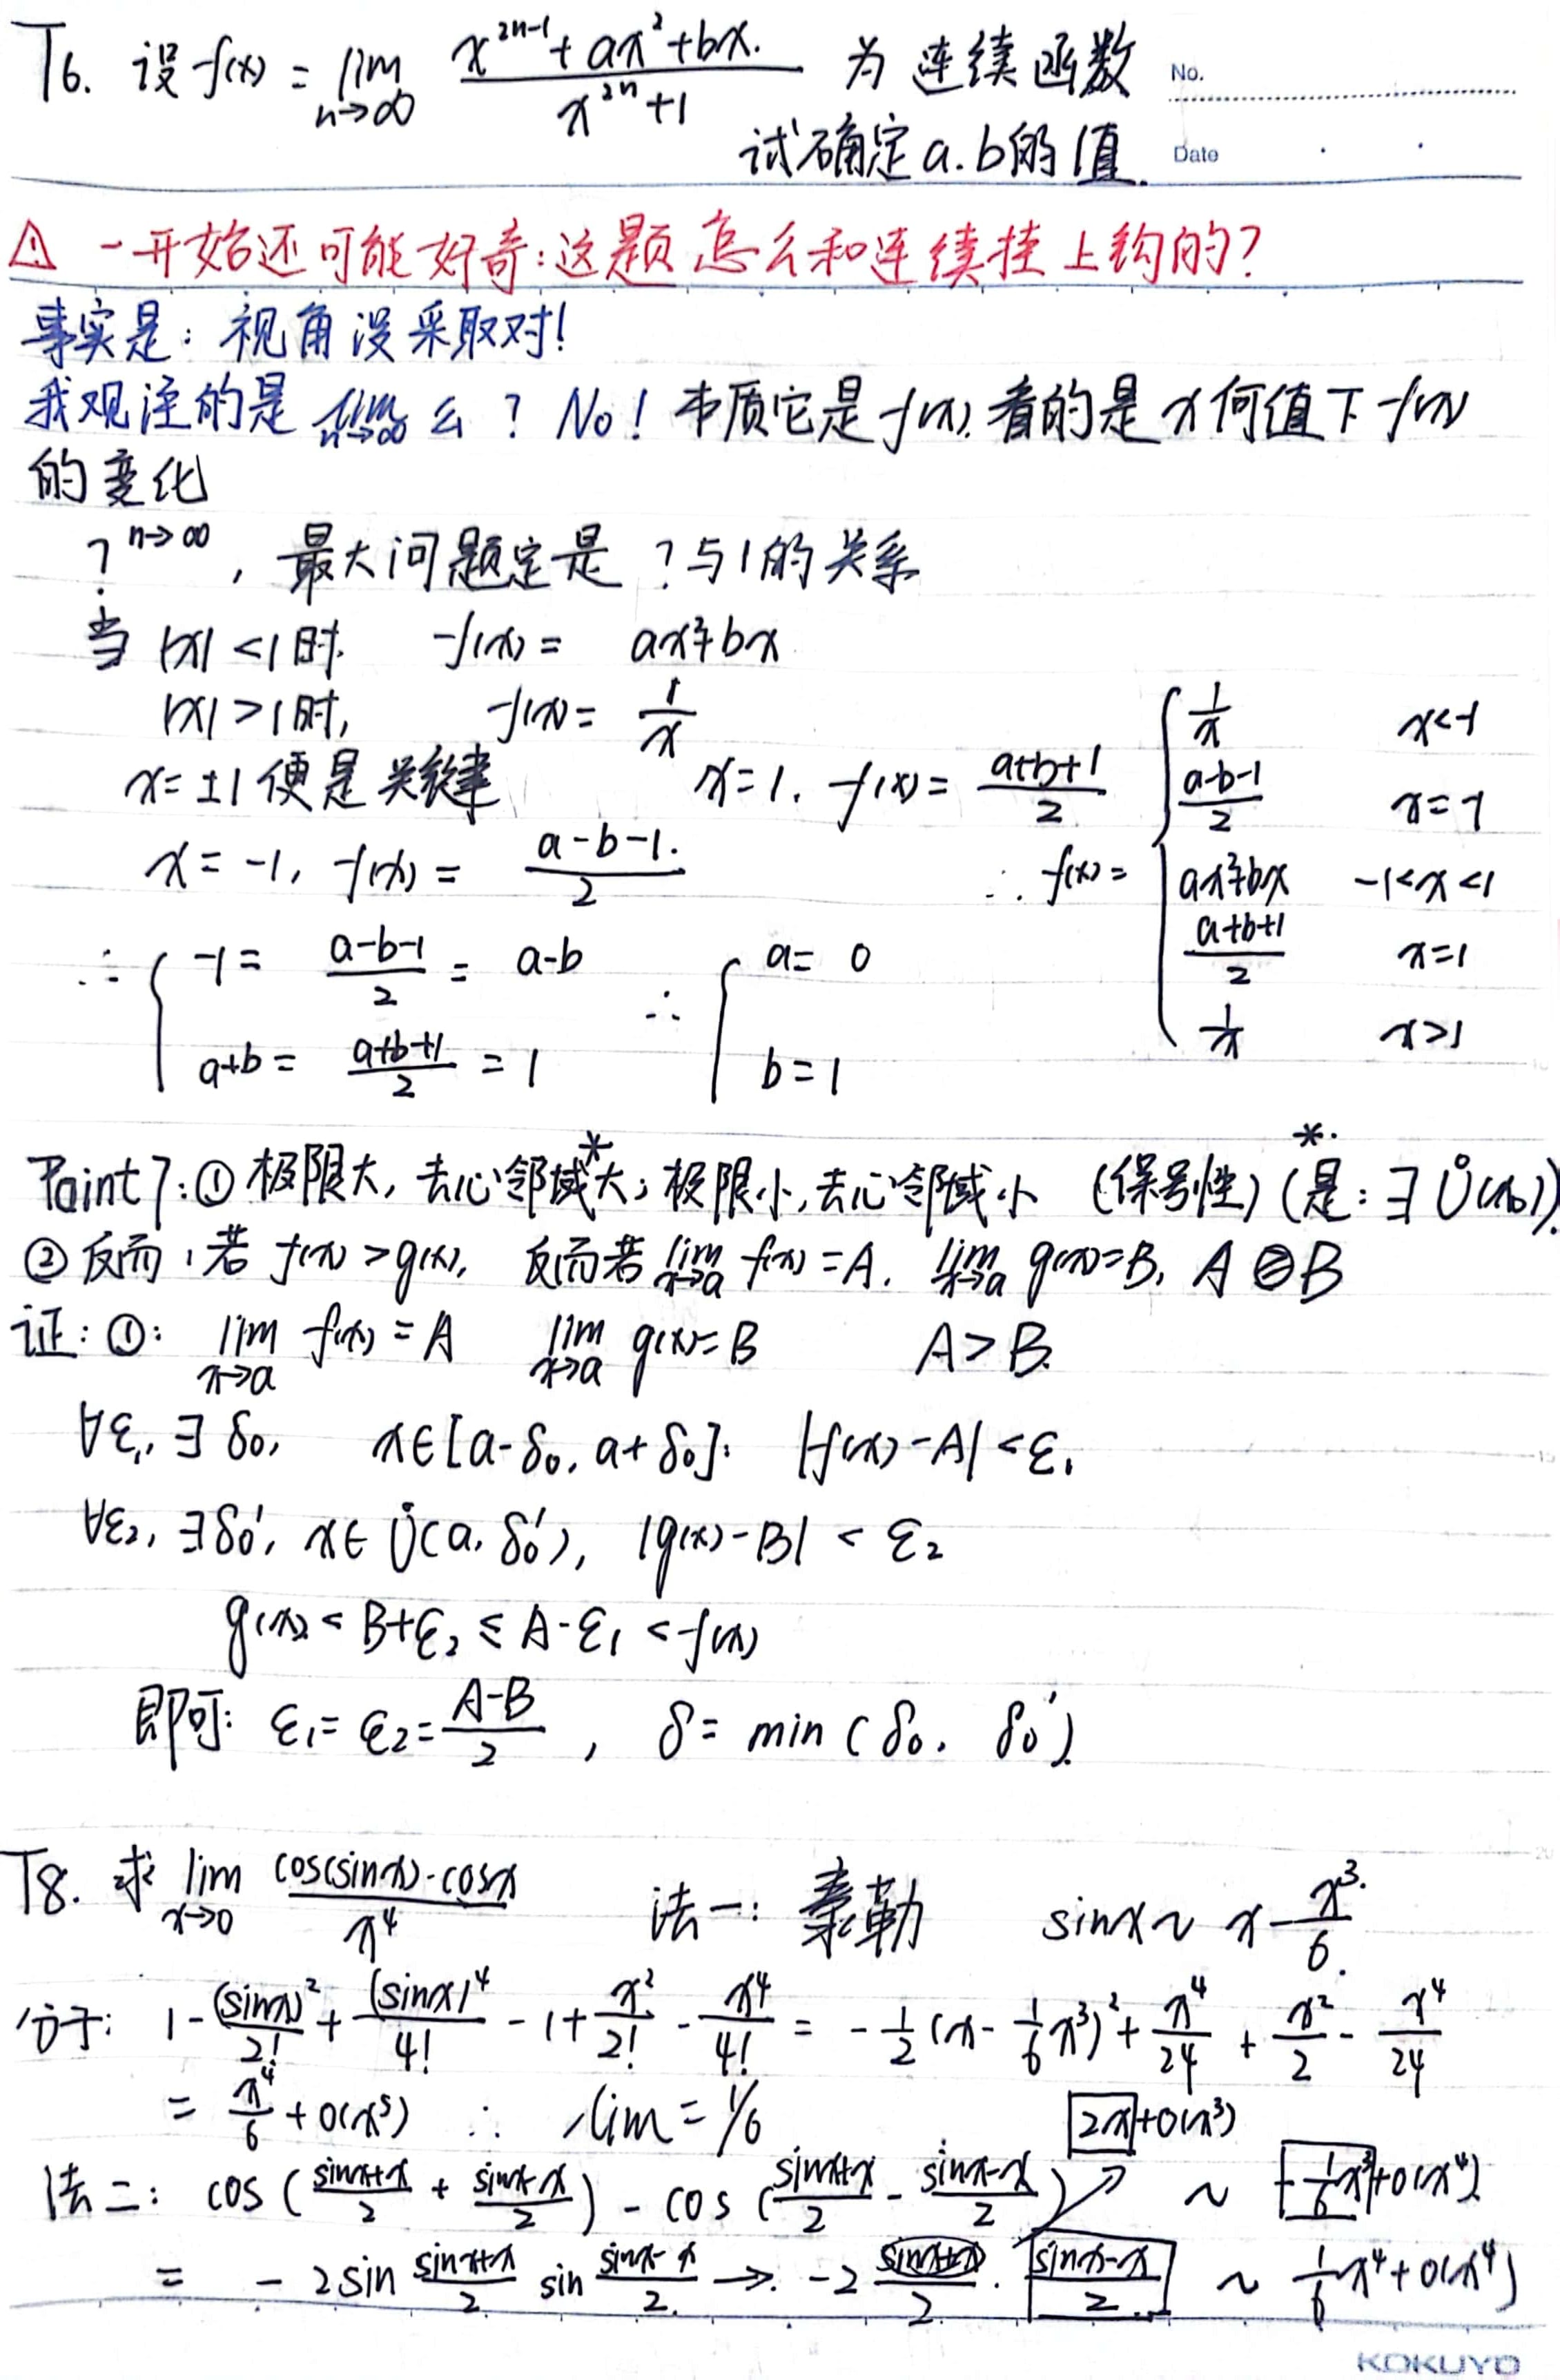 T6. 设 f(x) = lim n→∞ (x^{2n-1} + ax² + bx.)/(x^{2n} + 1) 为连续函数
No.
试确定 a.b的值.
Date
⚠ 一开始还可能好奇:这题怎么和连续挂上钩的?
事实是: 视角没采取对!
我观注的是 lim n→∞ 么? No! 本质它是 f(x). 看的是 x 何值下 f(x)
的变化
?^{n→∞}, 最大问题定是 ?与1的关系
当 |x| <1时. f(x) = ax²+bx
|x| >1时, f(x) = 1/x
x= ±1 便是关键 x=1. f(x) = (a+b+1)/2
x = -1, f(x) = (a-b-1.)/2
∴ f(x) = { 1/x x<-1
(a-b-1)/2 x=-1
ax²+bx -1<x<1
(a+b+1)/2 x=1
1/x x>1
∴ { -1 = (a-b-1)/2 = a-b ∴ { a= 0
a+b = (a+b+1)/2 = 1 b=1
Point7: ① 极限大, 去心邻域*大; 极限小,去心邻域小 (保号性) (*是: ∃ Ů(x₀)).
② 反而, 若 f(x) >g(x), 反而若 lim x→a f(x) =A. lim x→a g(x)=B, A ≥ B
证: ①: lim x→a f(x) = A lim x→a g(x)=B A> B.
∀ε₁, ∃ δ₀, x∈[a-δ₀, a+δ₀]: |f(x)-A| <ε₁
∀ε₂, ∃δ₀', x∈ Ů(a, δ₀'), |g(x)-B| < ε₂
g(x) < B+ε₂ ≤ A-ε₁ < f(x)
即可: ε₁= ε₂= (A-B)/2 , δ= min (δ₀, δ₀').
T8. 求 lim x→0 (cos(sinx)-cosx)/x⁴ 法一: 泰勒 sinx ~ x - x³/6.
分子: 1 - (sinx)²/2! + (sinx)⁴/4! - 1 + x²/2! - x⁴/4! = -1/2 (x - 1/6 x³)² + x⁴/24 + x²/2 - x⁴/24
= x⁴/6 + o(x⁵) ∴ lim = 1/6 2x+o(x³)
法二: cos ( (sinx+x)/2 + (sinx-x)/2 ) - cos ( (sinx+x)/2 - (sinx-x)/2 ) ~ -1/6 x³+o(x⁴)
= - 2 sin (sinx+x)/2 sin (sinx-x)/2 → -2 (sinx+x)/2 · (sinx-x)/2 ~ 1/6 x⁴ + o(x⁴)
KOKUYO